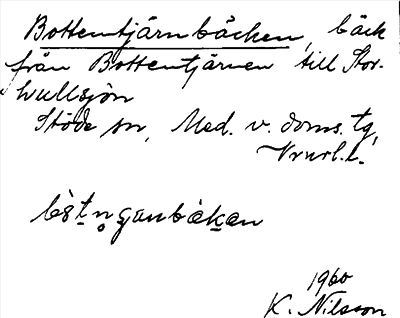 Bottentjärnbäcken, bäck
från Bottentjärnen till Stor-
hullsjön
Stöde sn, Med. v. doms. tg,
Vnorl. l.
1960
K. Nilsson